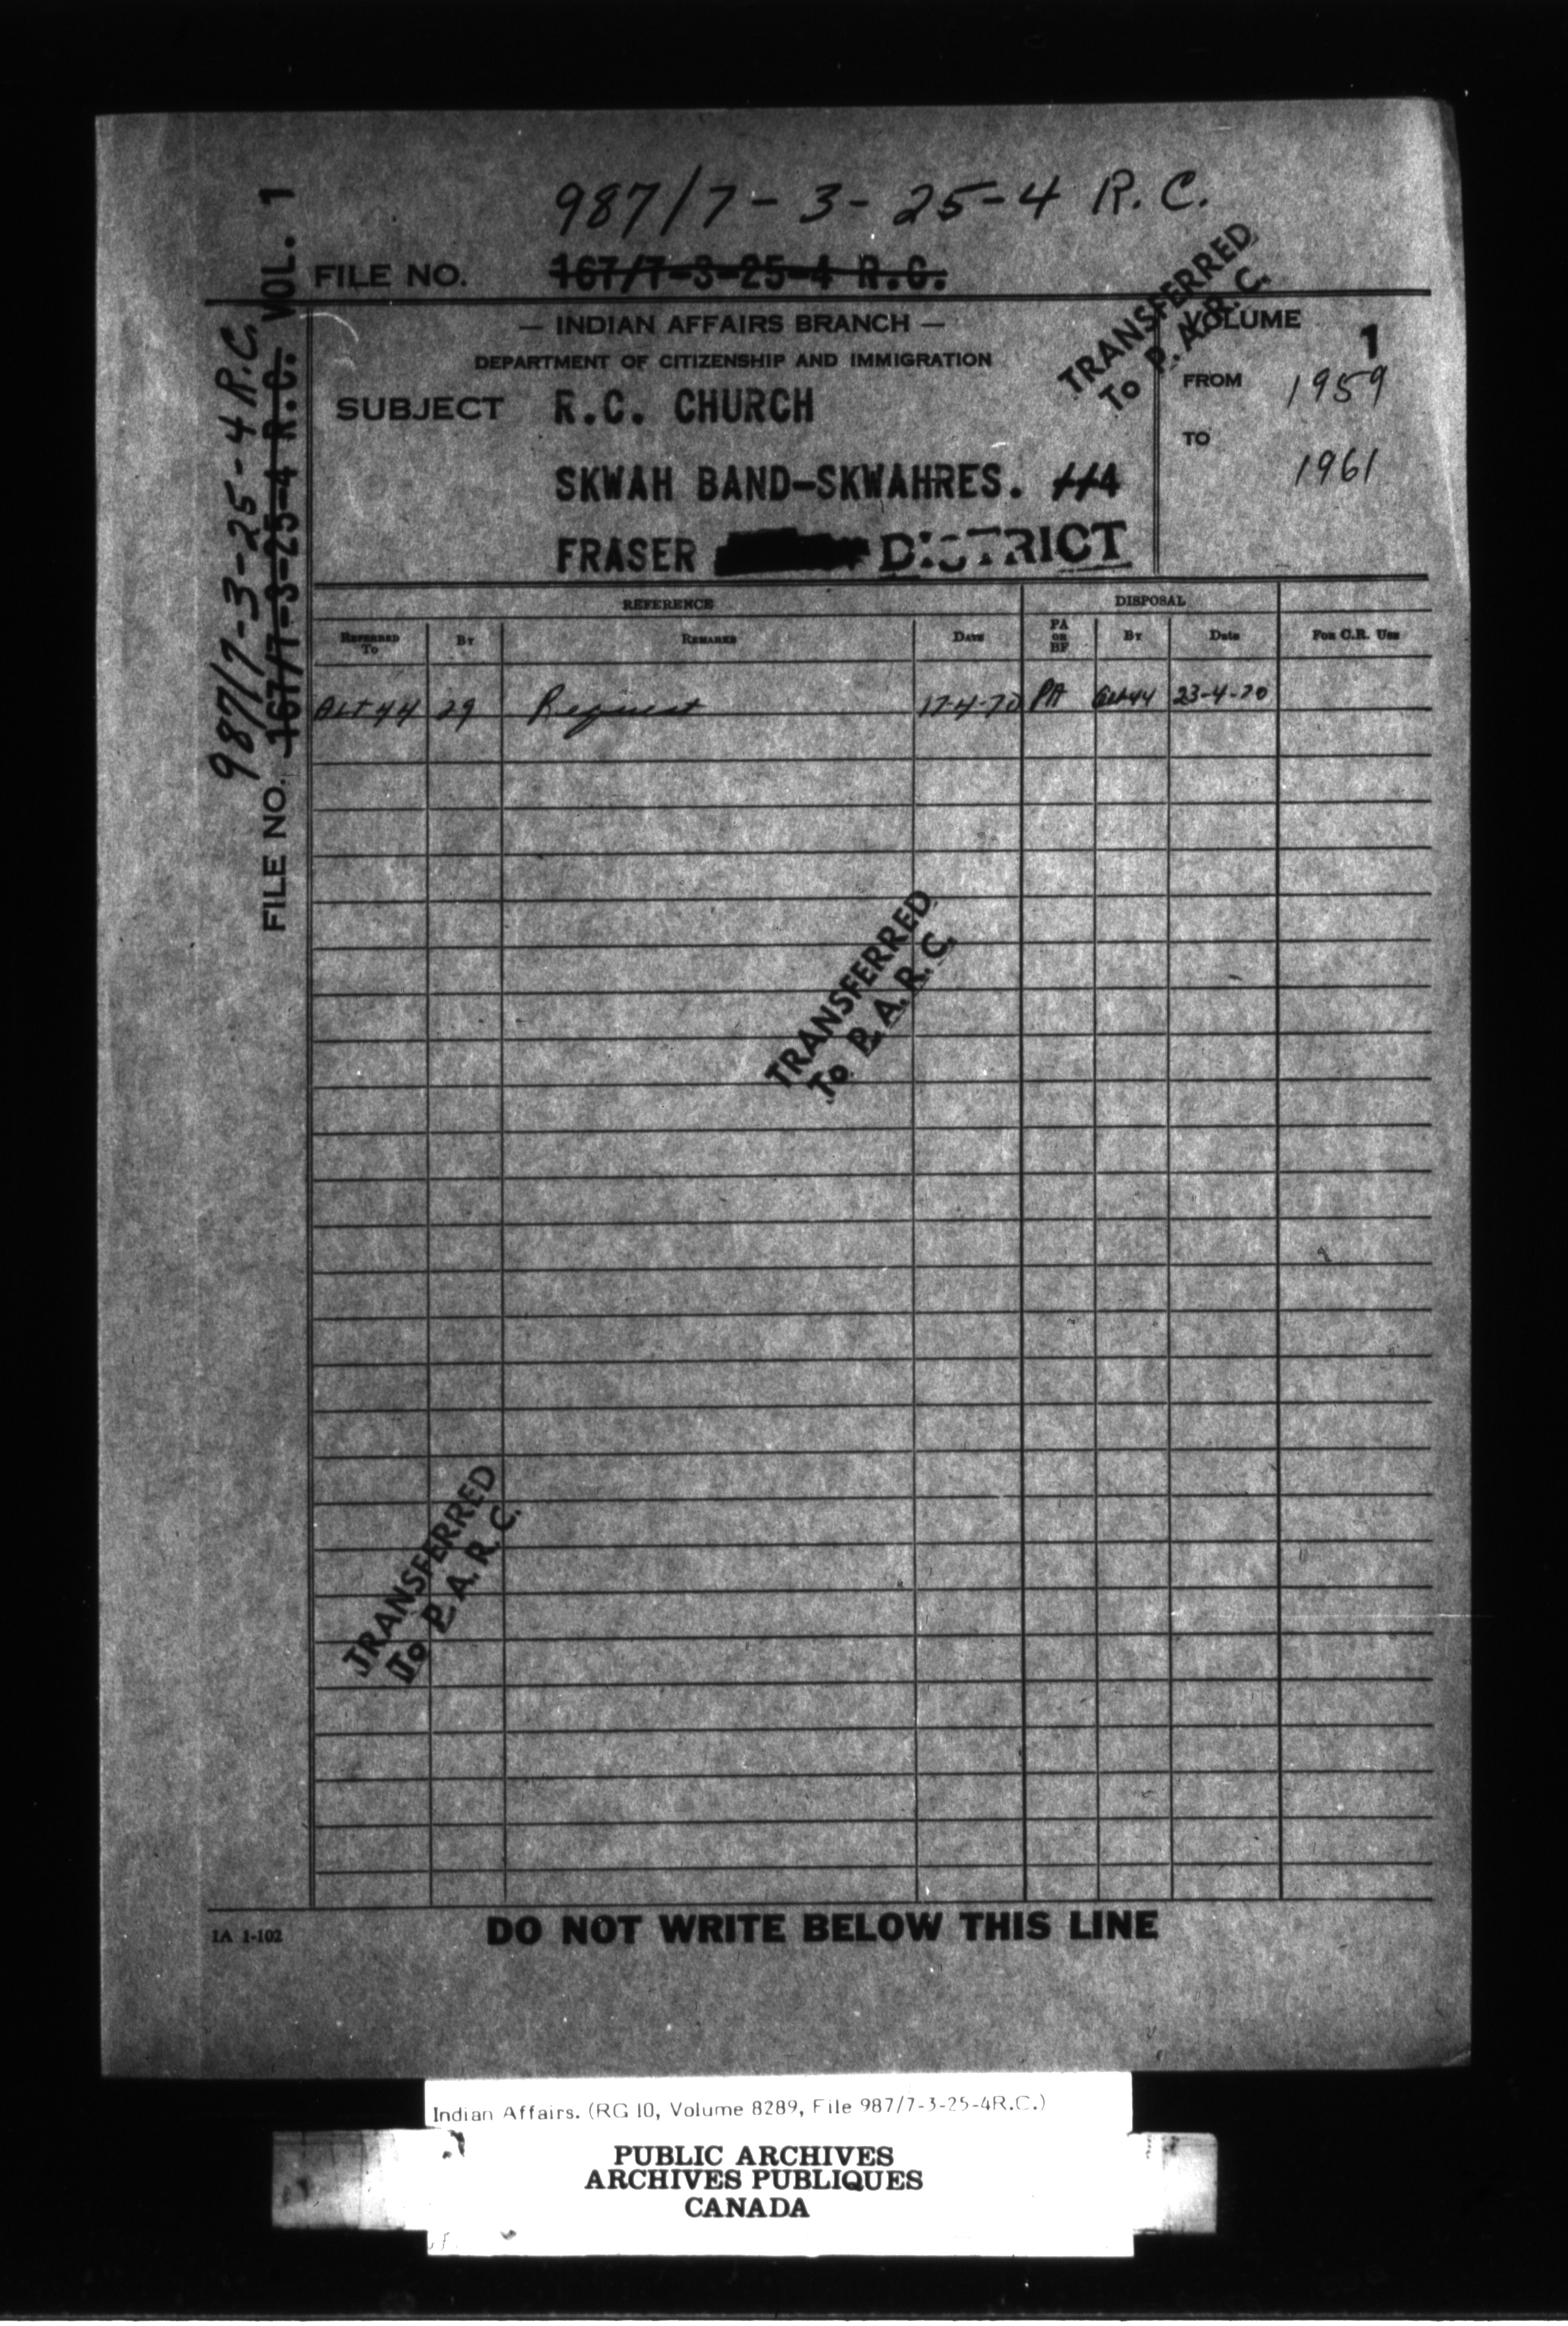 987/7-3-25-4 R.C.
FILE NO. 167/7-3-25-4 R.C.
TRANSFERRED
To P.A.R.C.
— INDIAN AFFAIRS BRANCH —
DEPARTMENT OF CITIZENSHIP AND IMMIGRATION
VOLUME 1
FROM 1959
TO 1961
SUBJECT R.C. CHURCH
SKWAH BAND-SKWAHRES. 4
FRASER DISTRICT
987/7-3-25-4 R.C.
FILE NO. 167/7-3-25-4 R.C. VOL. 1
REFERENCE DISPOSAL
REFERRED TO BY REMARKS DATE PA OR BF BY DATE FOR C.R. USE
ALT 44 29 Request 17-4-70 PA 23-4-70
TRANSFERRED
To P.A.R.C.
TRANSFERRED
To P.A.R.C.
IA 1-102 DO NOT WRITE BELOW THIS LINE
Indian Affairs. (RG 10, Volume 8289, File 987/7-3-25-4R.C.)
PUBLIC ARCHIVES
ARCHIVES PUBLIQUES
CANADA